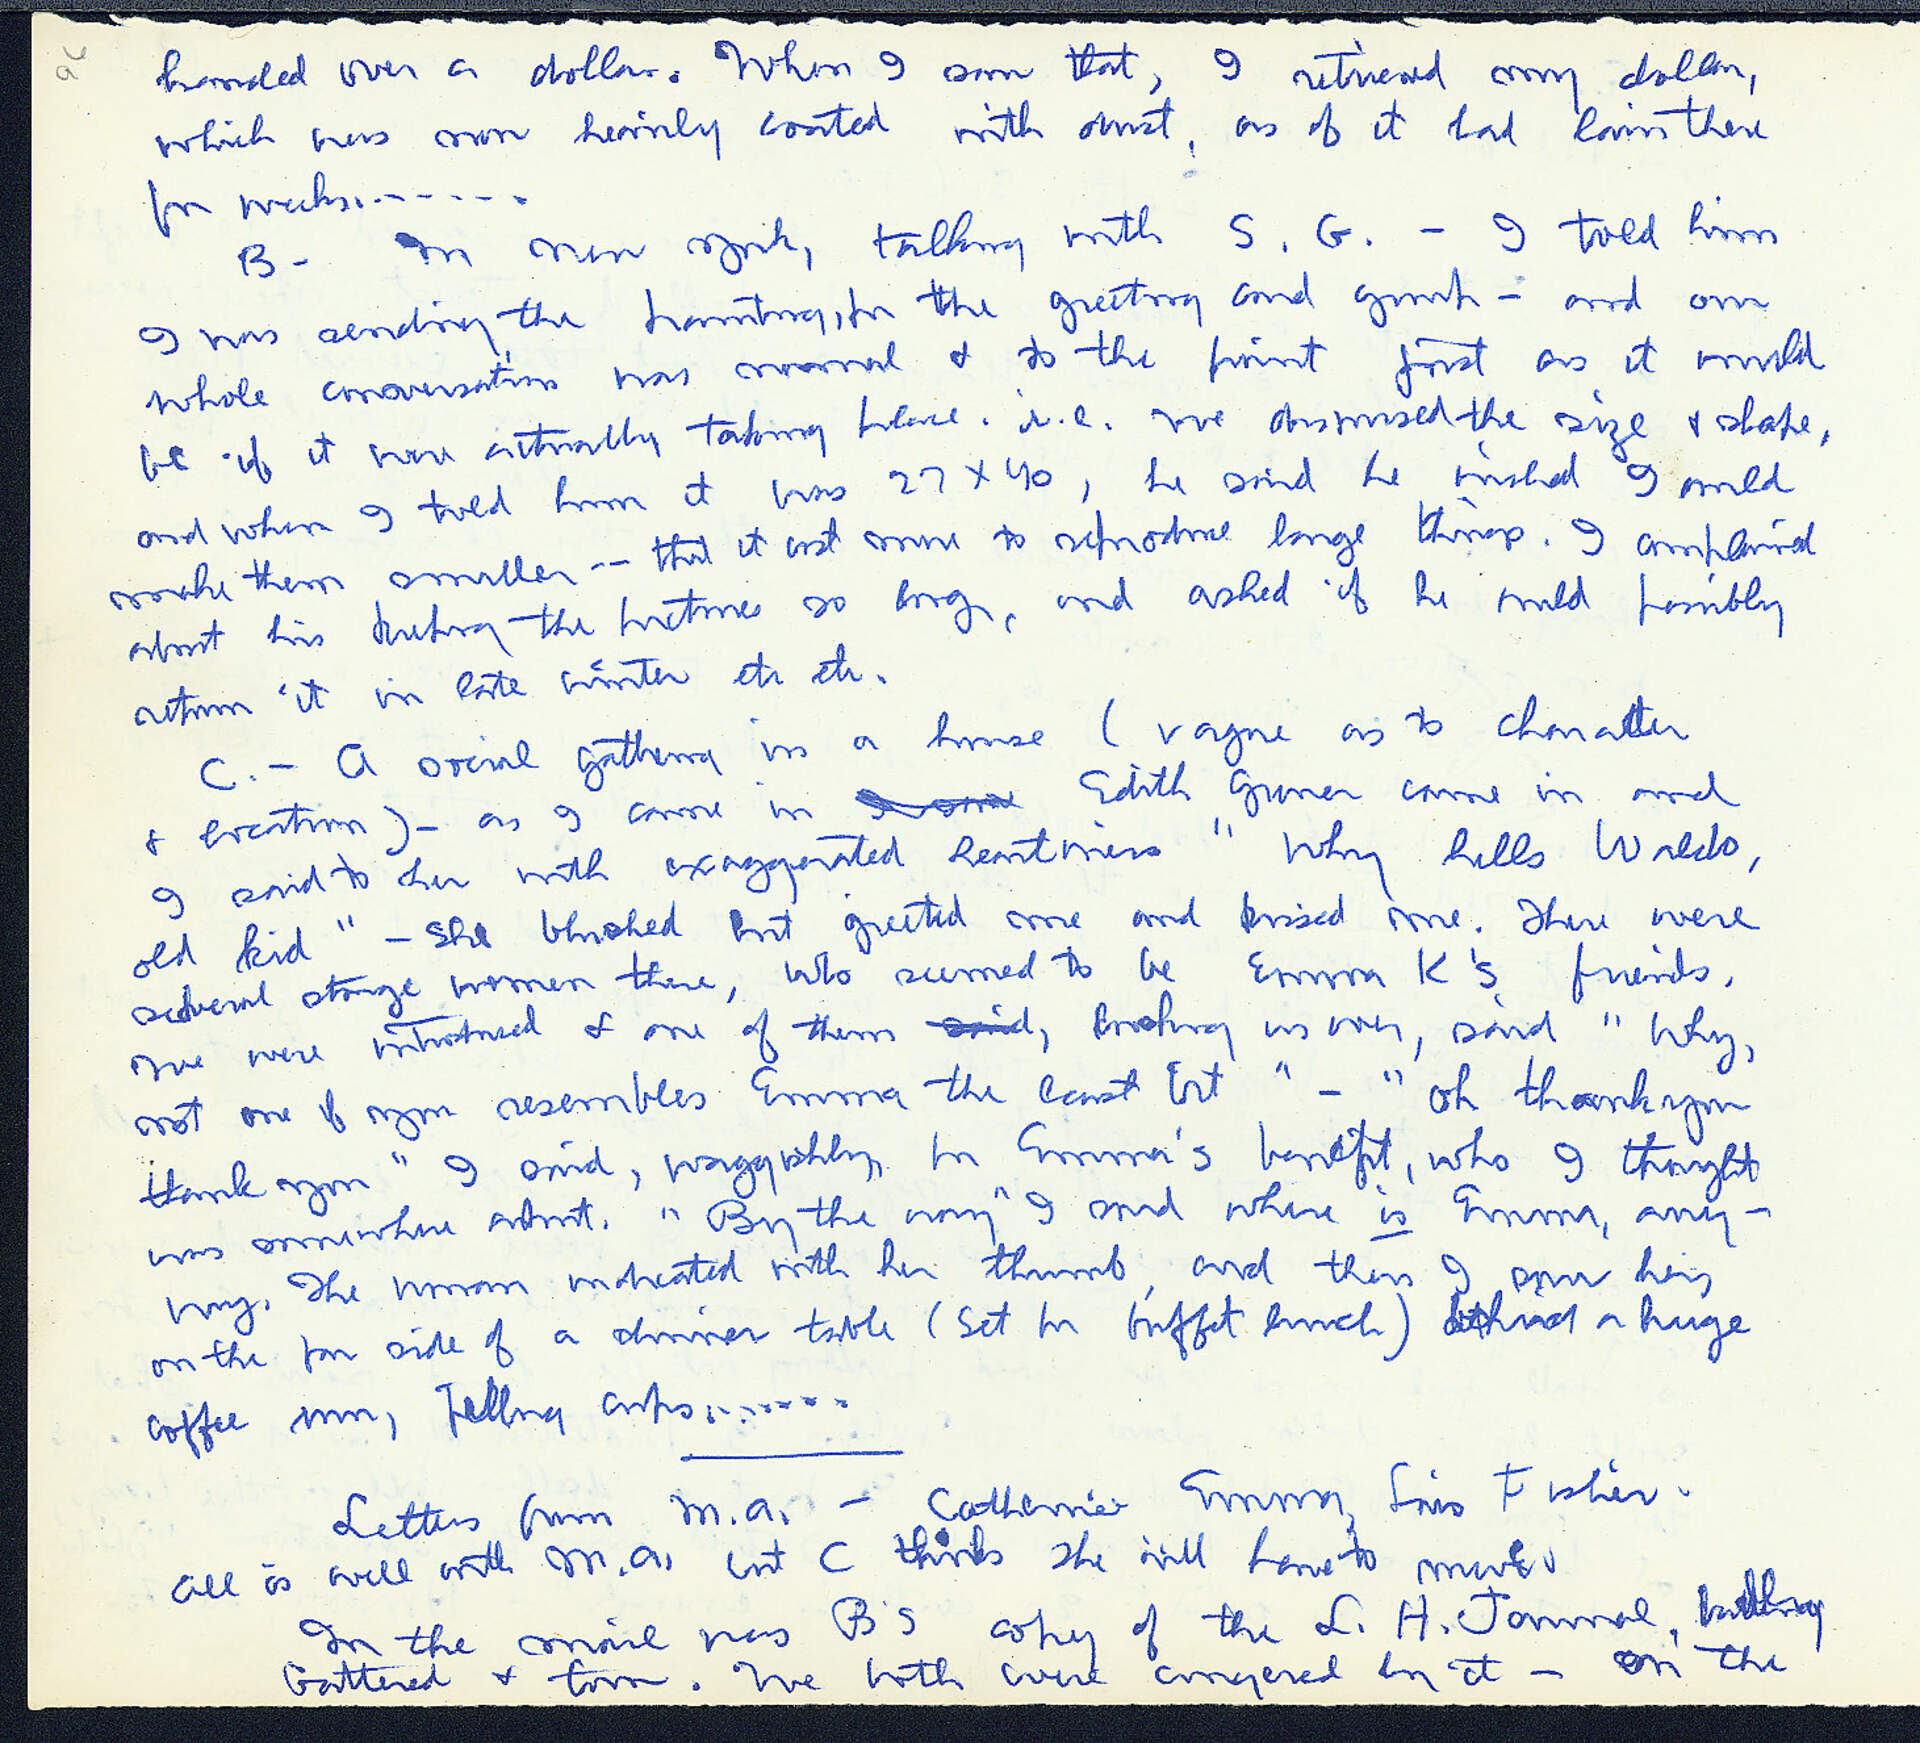 handed over a dollar. When I saw that, I retrieved my dollar,
which was now heavily coated with dust, as if it had lain there
for weeks.------
B- In New York, talking with S. G. - I told him
I was sending the painting, for the greeting card group - and our
whole conversation was normal & to the point just as it would
be if it were actually taking place. i.e. we discussed the size & shape,
and when I told him it was 27 x 40, he said he wished I could
make them smaller -- that it cost more to reproduce large things. I complained
about his keeping the pictures so long, and asked if he could possibly
return it in late winter etc etc.
C.- A social gathering in a house (vague as to character
& location) - as I came in I saw Edith Gruner came in and
I said to her with exaggerated heartiness "Why hello Waldo,
old kid" - she blushed but greeted me and kissed me. There were
several strange women there, who seemed to be Emma K's friends.
We were introduced & one of them said, looking us over, said "Why,
not one of you resembles Emma the least bit" - "oh thank you
thank you" I said, waggishly, for Emma's benefit, who I thought
was somewhere about. "By the way" I said where is Emma, any-
way. The woman indicated with her thumb, and then I saw her,
on the far side of a dinner table (set for buffet lunch) behind a huge
coffee urn, filling cups.......
Letters from M.A. - Catherine Emma, Lois Fisher.
All is well with M.A. but C thinks she will have to move.
In the mail was B's copy of the L. H. Journal,
battered & torn. We both were angered by it - on the